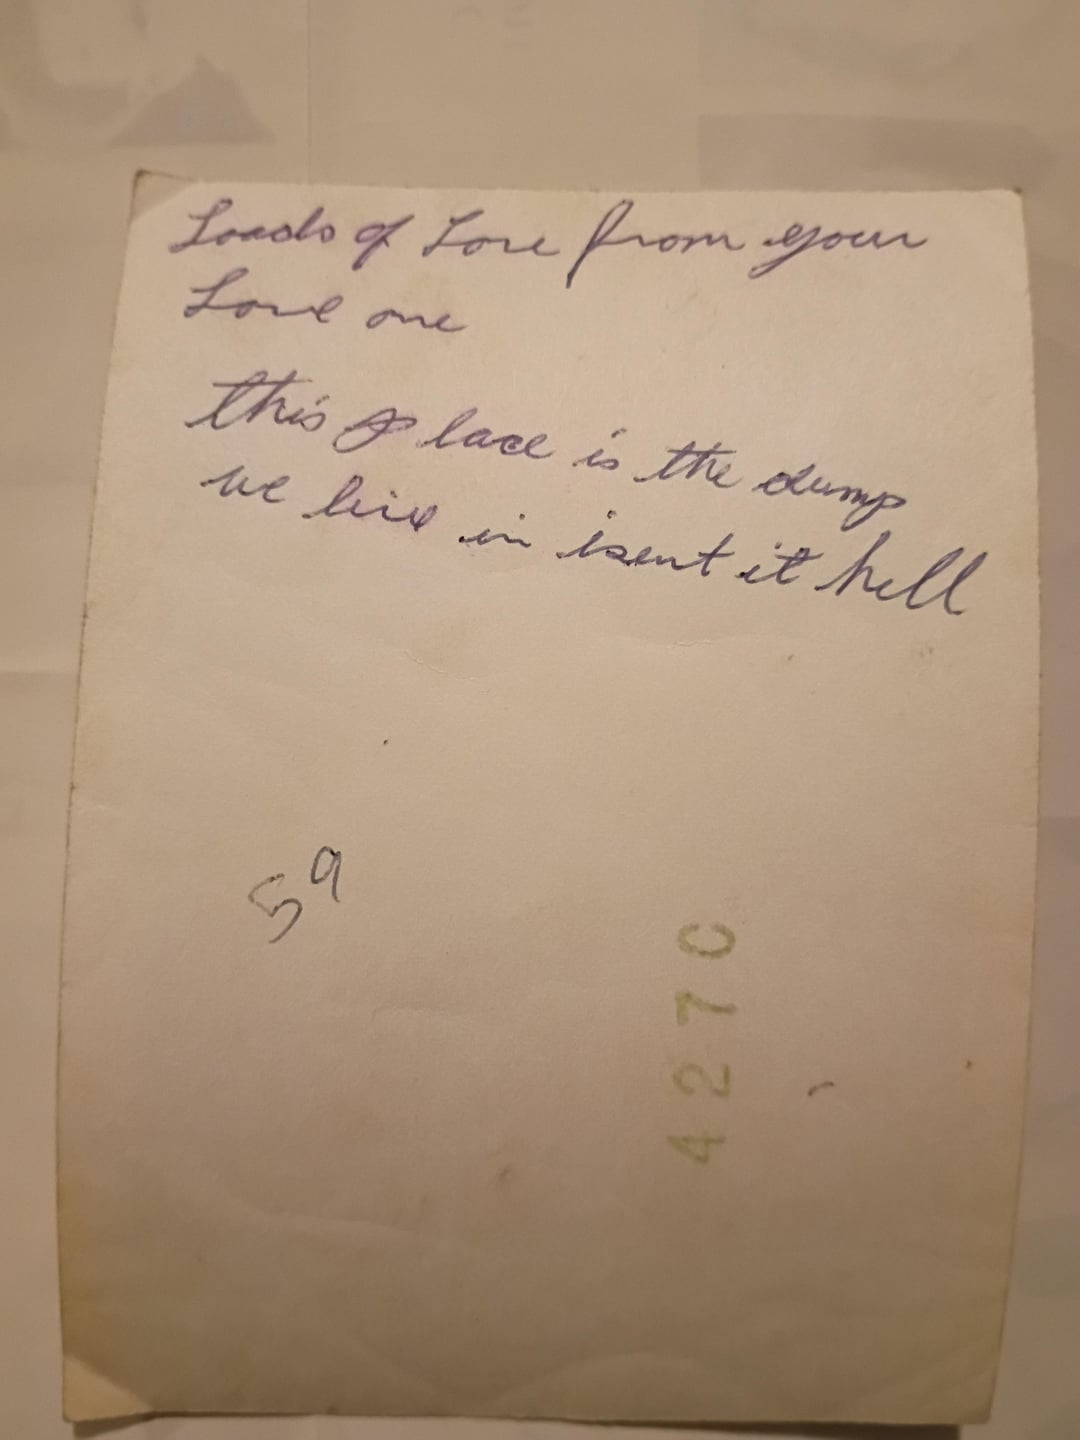 Loads of Love from your
Love one
this place is the dump
we live in isent it hell
59
427C